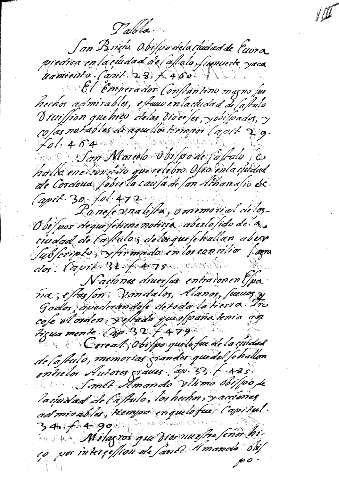 Tabla.
VIII
San Obispo de la ciudad de Evora
predica en la ciudad de Castulo, su muerte y aca
bamiento. Capit. 28. f. 460.
El Emperador Constantino magno sus
hechos admirables, estuvo en la ciudad de Castulo
division que hizo de las y obispados, y
cosas notables de aquellos tiempos Capit. 29.
fol. 464
San Marcelo obispo de Castulo, se
halla en el concilio que celebro Osio en la ciudad
de Cordova, sobre la causa de san Athanasio &c
Capit. 30. fol. 472
Ponese una lista, o memorial de los
Obispos de que se tiene noticia, aberlo sido de la
ciudad de Castulo; de los que se hallan aber
subscripto, y firmado en los concilios
dos. Capit. 31. f. 475
Naciones diversas entraron en Espa
ña; estas son, Vandalos, Alanos, suevos, y
Godos, apoderandose de toda la tierra. Pro
cose el orden, y estado que españa tenia an
tiguamente. Cap. 32. f. 479
Cereal, Obispo que fue de la ciudad
de Castulo, memorias grandes que del se hallan
entre los Autores graves. Cap. 33. f. 485
Sanct Amando ultimo Obispo de
la ciudad de Castulo, los hechos, y acciones
admirables, tiempo en que lo fue Capitul.
34. f. 490
Milagros que Dios nuestro señor hi
ço, por intercession de sanct Amando obis
po.